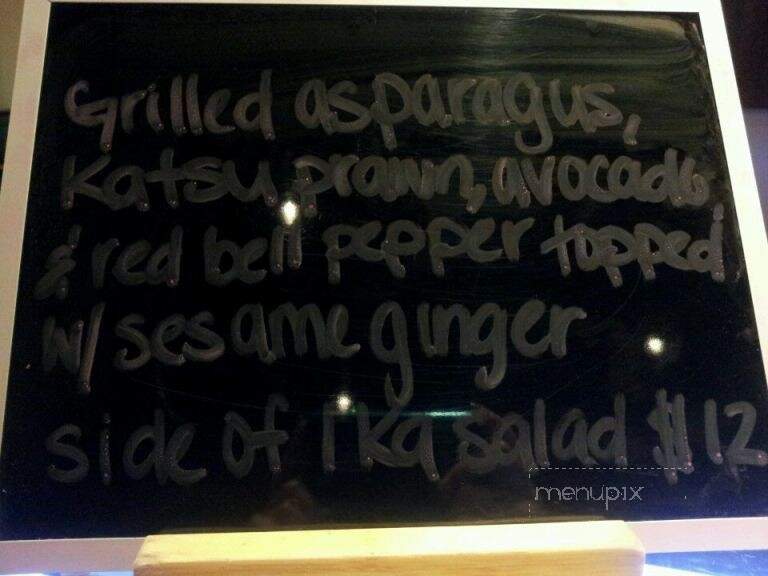 Grilled asparagus,
Katsu prawn, avocado
& red bell pepper topped
w/ sesame ginger
side of Ika salad $12
menupix